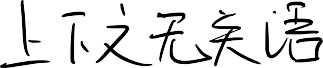 上下文无关语